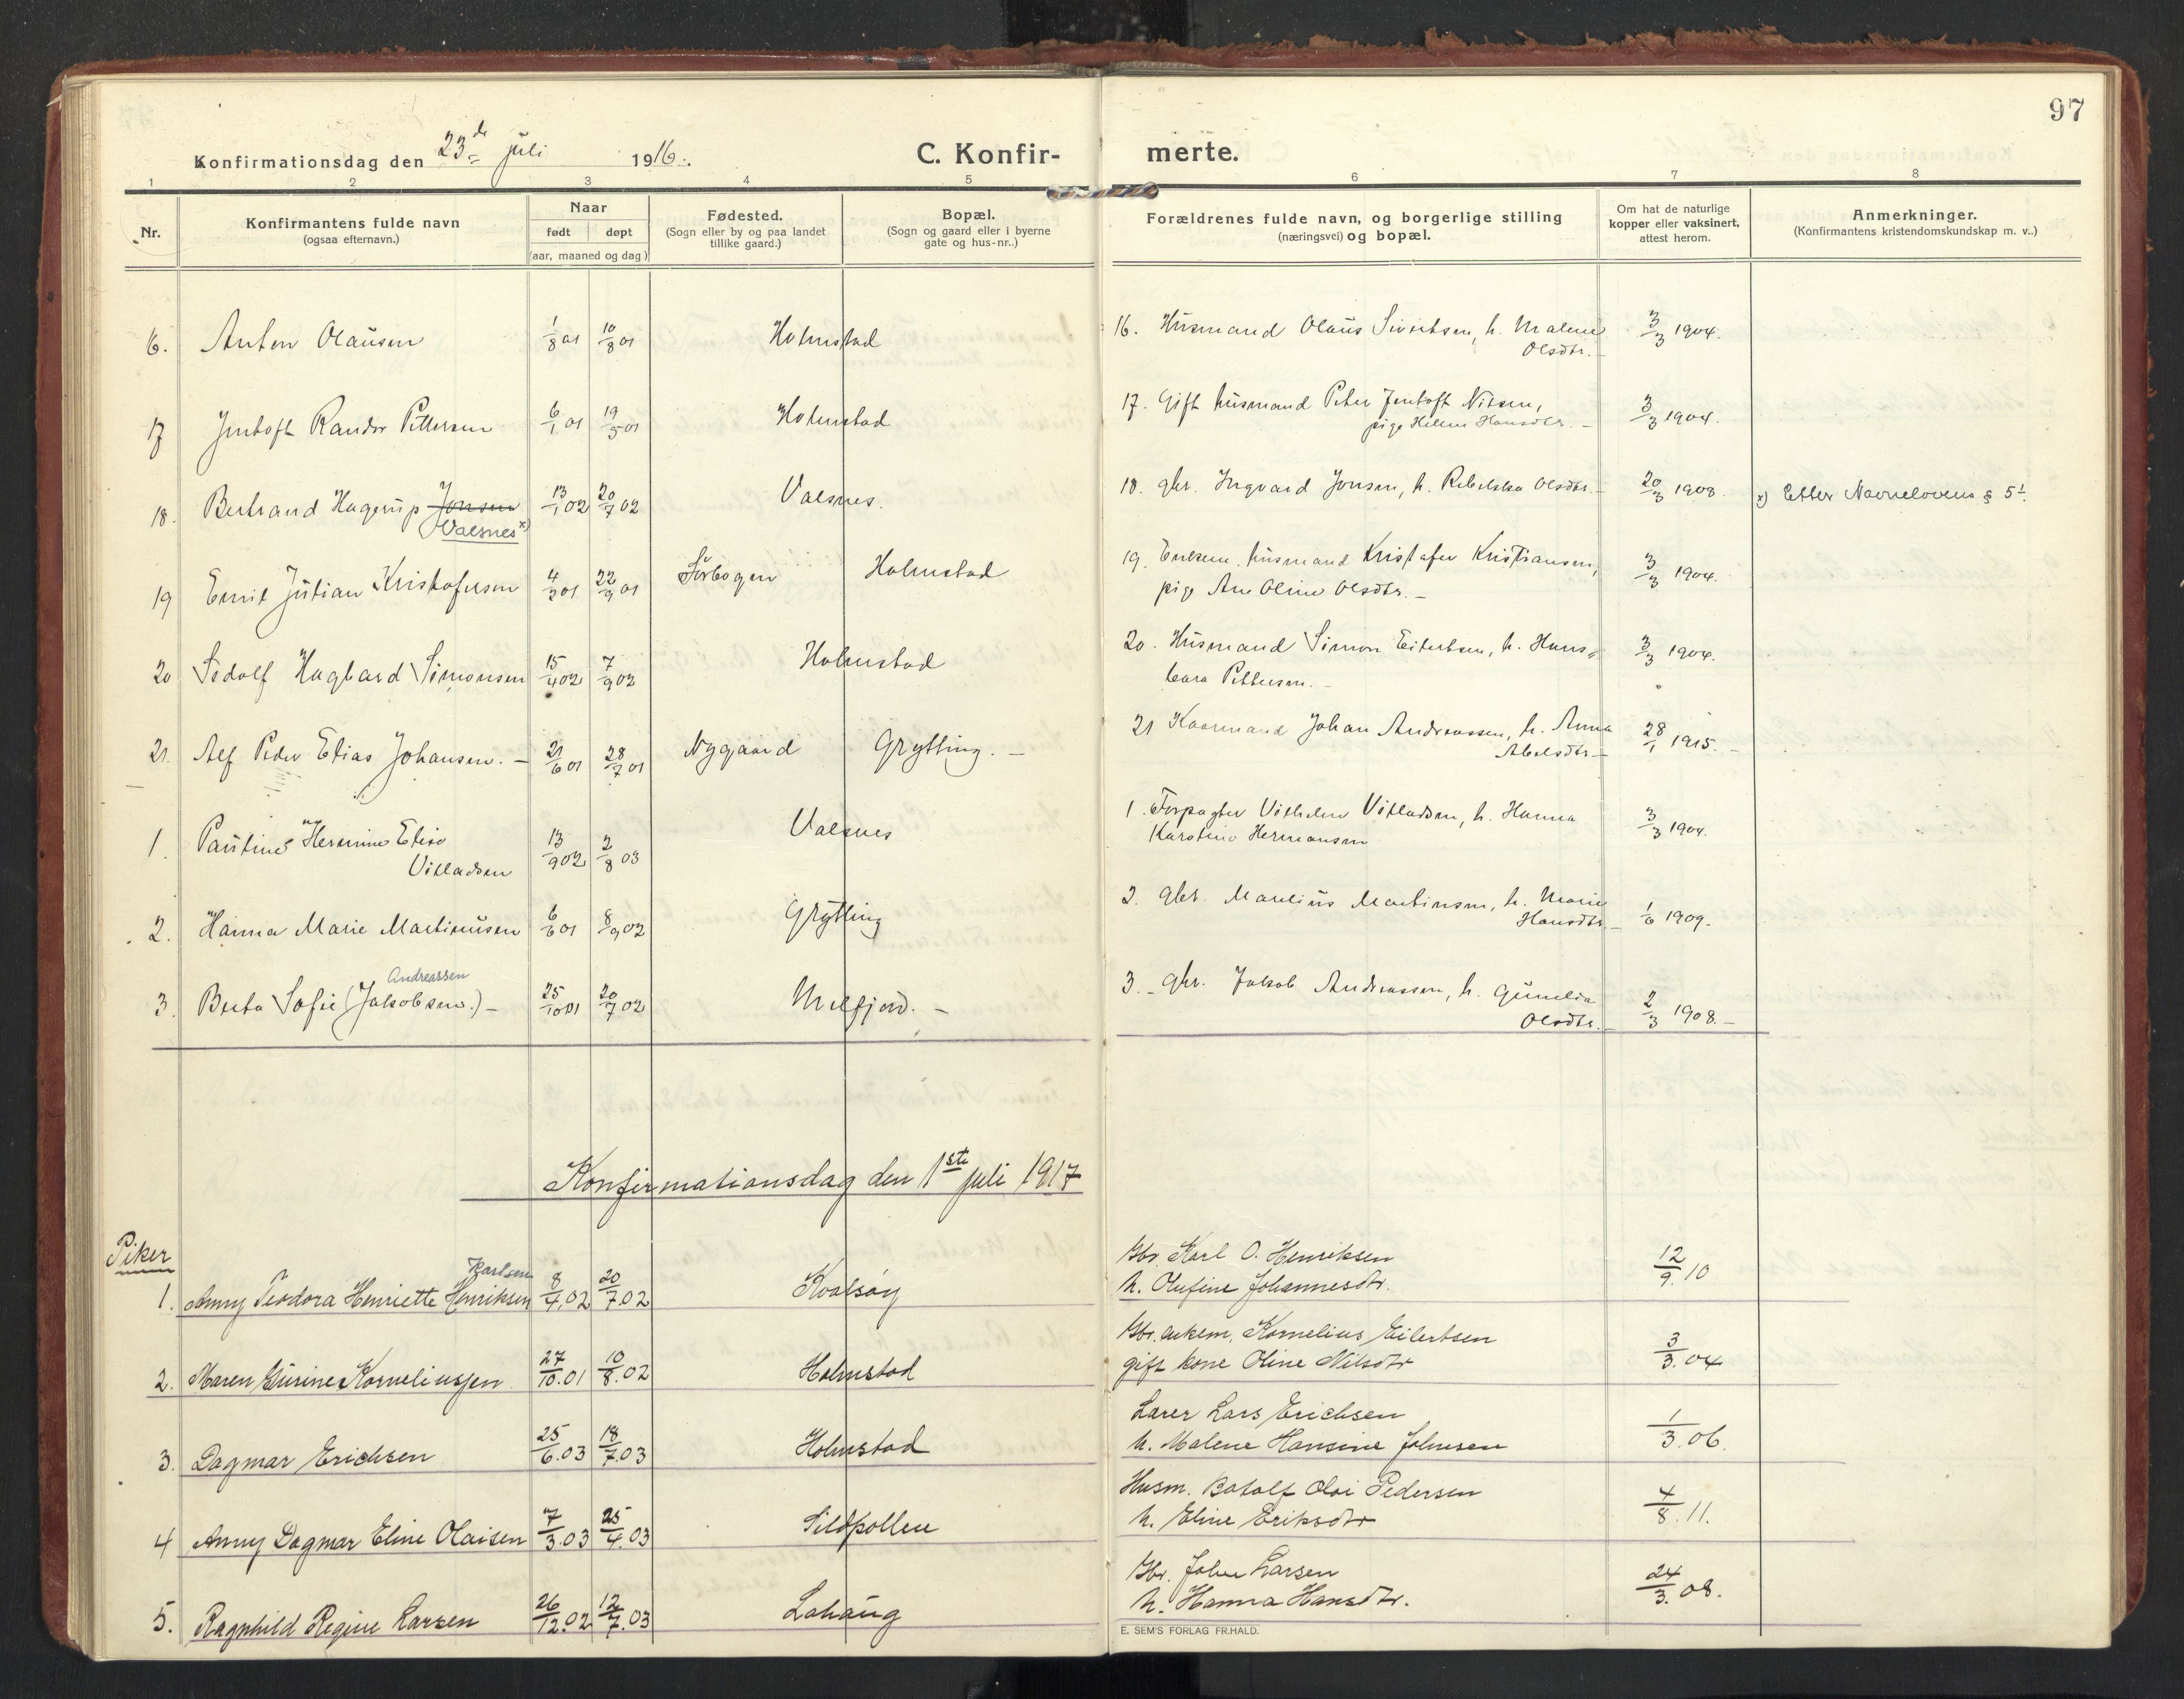 97
Konfirmationsdag den 23de juli 1916.
C. Konfir-
merte.
1 2 3 4 5 6 7 8
Nr.
Konfirmantens fulde navn
(ogsaa efternavn.)
Naar
født døpt
(aar, maaned og dag)
Fødested.
(Sogn eller by og paa landet
tillike gaard.)
Bopæl.
(Sogn og gaard eller i byerne
gate og hus-nr..)
Forældrenes fulde navn, og borgerlige stilling
(næringsvei) og bopæl.
Om hat de naturlige
kopper eller vaksinert,
attest herom.
Anmerkninger.
(Konfirmantens kristendomskundskap m. v..)
6. Anton Olausen 1/8 01 10/8 01 Holmstad 16. Husmand Olaus Sivertsen, h. Malene 3/3 1904.
Olsdtr.
17 Jentoft Randor Pettersen 6/1 01 19/5 01 Holmstad 17. Gift husmand Peter Jentoft Nilsen, 3/3 1904.
pige Helene Hansdtr. -
18. Bertrand Hagerup Jonsen 13/1 02 20/7 02 Valsnes. 18. gbr. Ingvard Jonsen, h. Rebekka Olsdtr. 20/3 1908. x) Etter Navnelovens § 5 1.
Valsnes x)
19 Emil Julian Kristofersen 4/2 01 22/9 01 Sörbogen Holmstad 19. Enkem. husmand Kristofer Kristiansen, 3/3 1904.
pige Ane Oline Olsdtr. -
20 Sedolf Hagbard Simonsen 15/4 02 7/9 02 Holmstad 20. Husmand Simon Eilertsen, h. Hans- 3/3 1904.
Pettersen. -
21. Alf Peder Elias Johansen. - 21/6 01 28/7 01 Nygaard Grytting. - 21 Kaarmand Johan Andreassen, h. Anna 28/1 1915. -
Abelsdtr -
1. Pauline Hermine Elise 13/9 02 2/8 03 Valsnes 1. Forpagter Vilhelm Villadsen, h. Hanna 3/3 1904.
Villadsen Karoline Hermansen
2. Hanna Marie Martinusen 6/6 01 8/9 02 Grytting 2. gbr. Martinsen, h. Marie 1/6 1909.
Hansdtr. -
Andreassen
3. Berta Sofie (Jakobsen.) - 25/10 01 20/7 02 Melfjord. - 3. - gbr. Jakob Andreassen, h. Gunelia 2/3 1908. -
Olsdtr. -
Konfirmationsdag den 1ste juli 1917
Piker
Karlsen
1. Anny Teodora Henriette Henriksen 8/4.02 20/7.02 Kvalsøy Gbr. Karl O. Henriksen 12/9.10
h. Olufine Johannesdtr.
2. Maren Gurine Korneliussen 27/10.01 10/8.02 Holmstad Gbr. enkem. Kornelius Eilertsen 3/3.04
gift kone Oline Nilsdtr
3. Dagmar Erichsen 25/6.03 18/7.03 Holmstad Lærer Lars Erichsen 1/3.06.
h. Malene Hansine Johnsen
4 Anny Dagmar Eline Olaisen 7/3.03 25/4.03 Sildpollen Husm. Botolf Olai Pedersen 4/8.11.
h. Eline Eriksdtr
5. Ragnhild Regine Larsen 26/12.02 12/7.03 Lahaug Gbr. John Larsen 24/3.08.
h. Hanna Hansdtr.
E. SEM'S FORLAG FR.HALD.